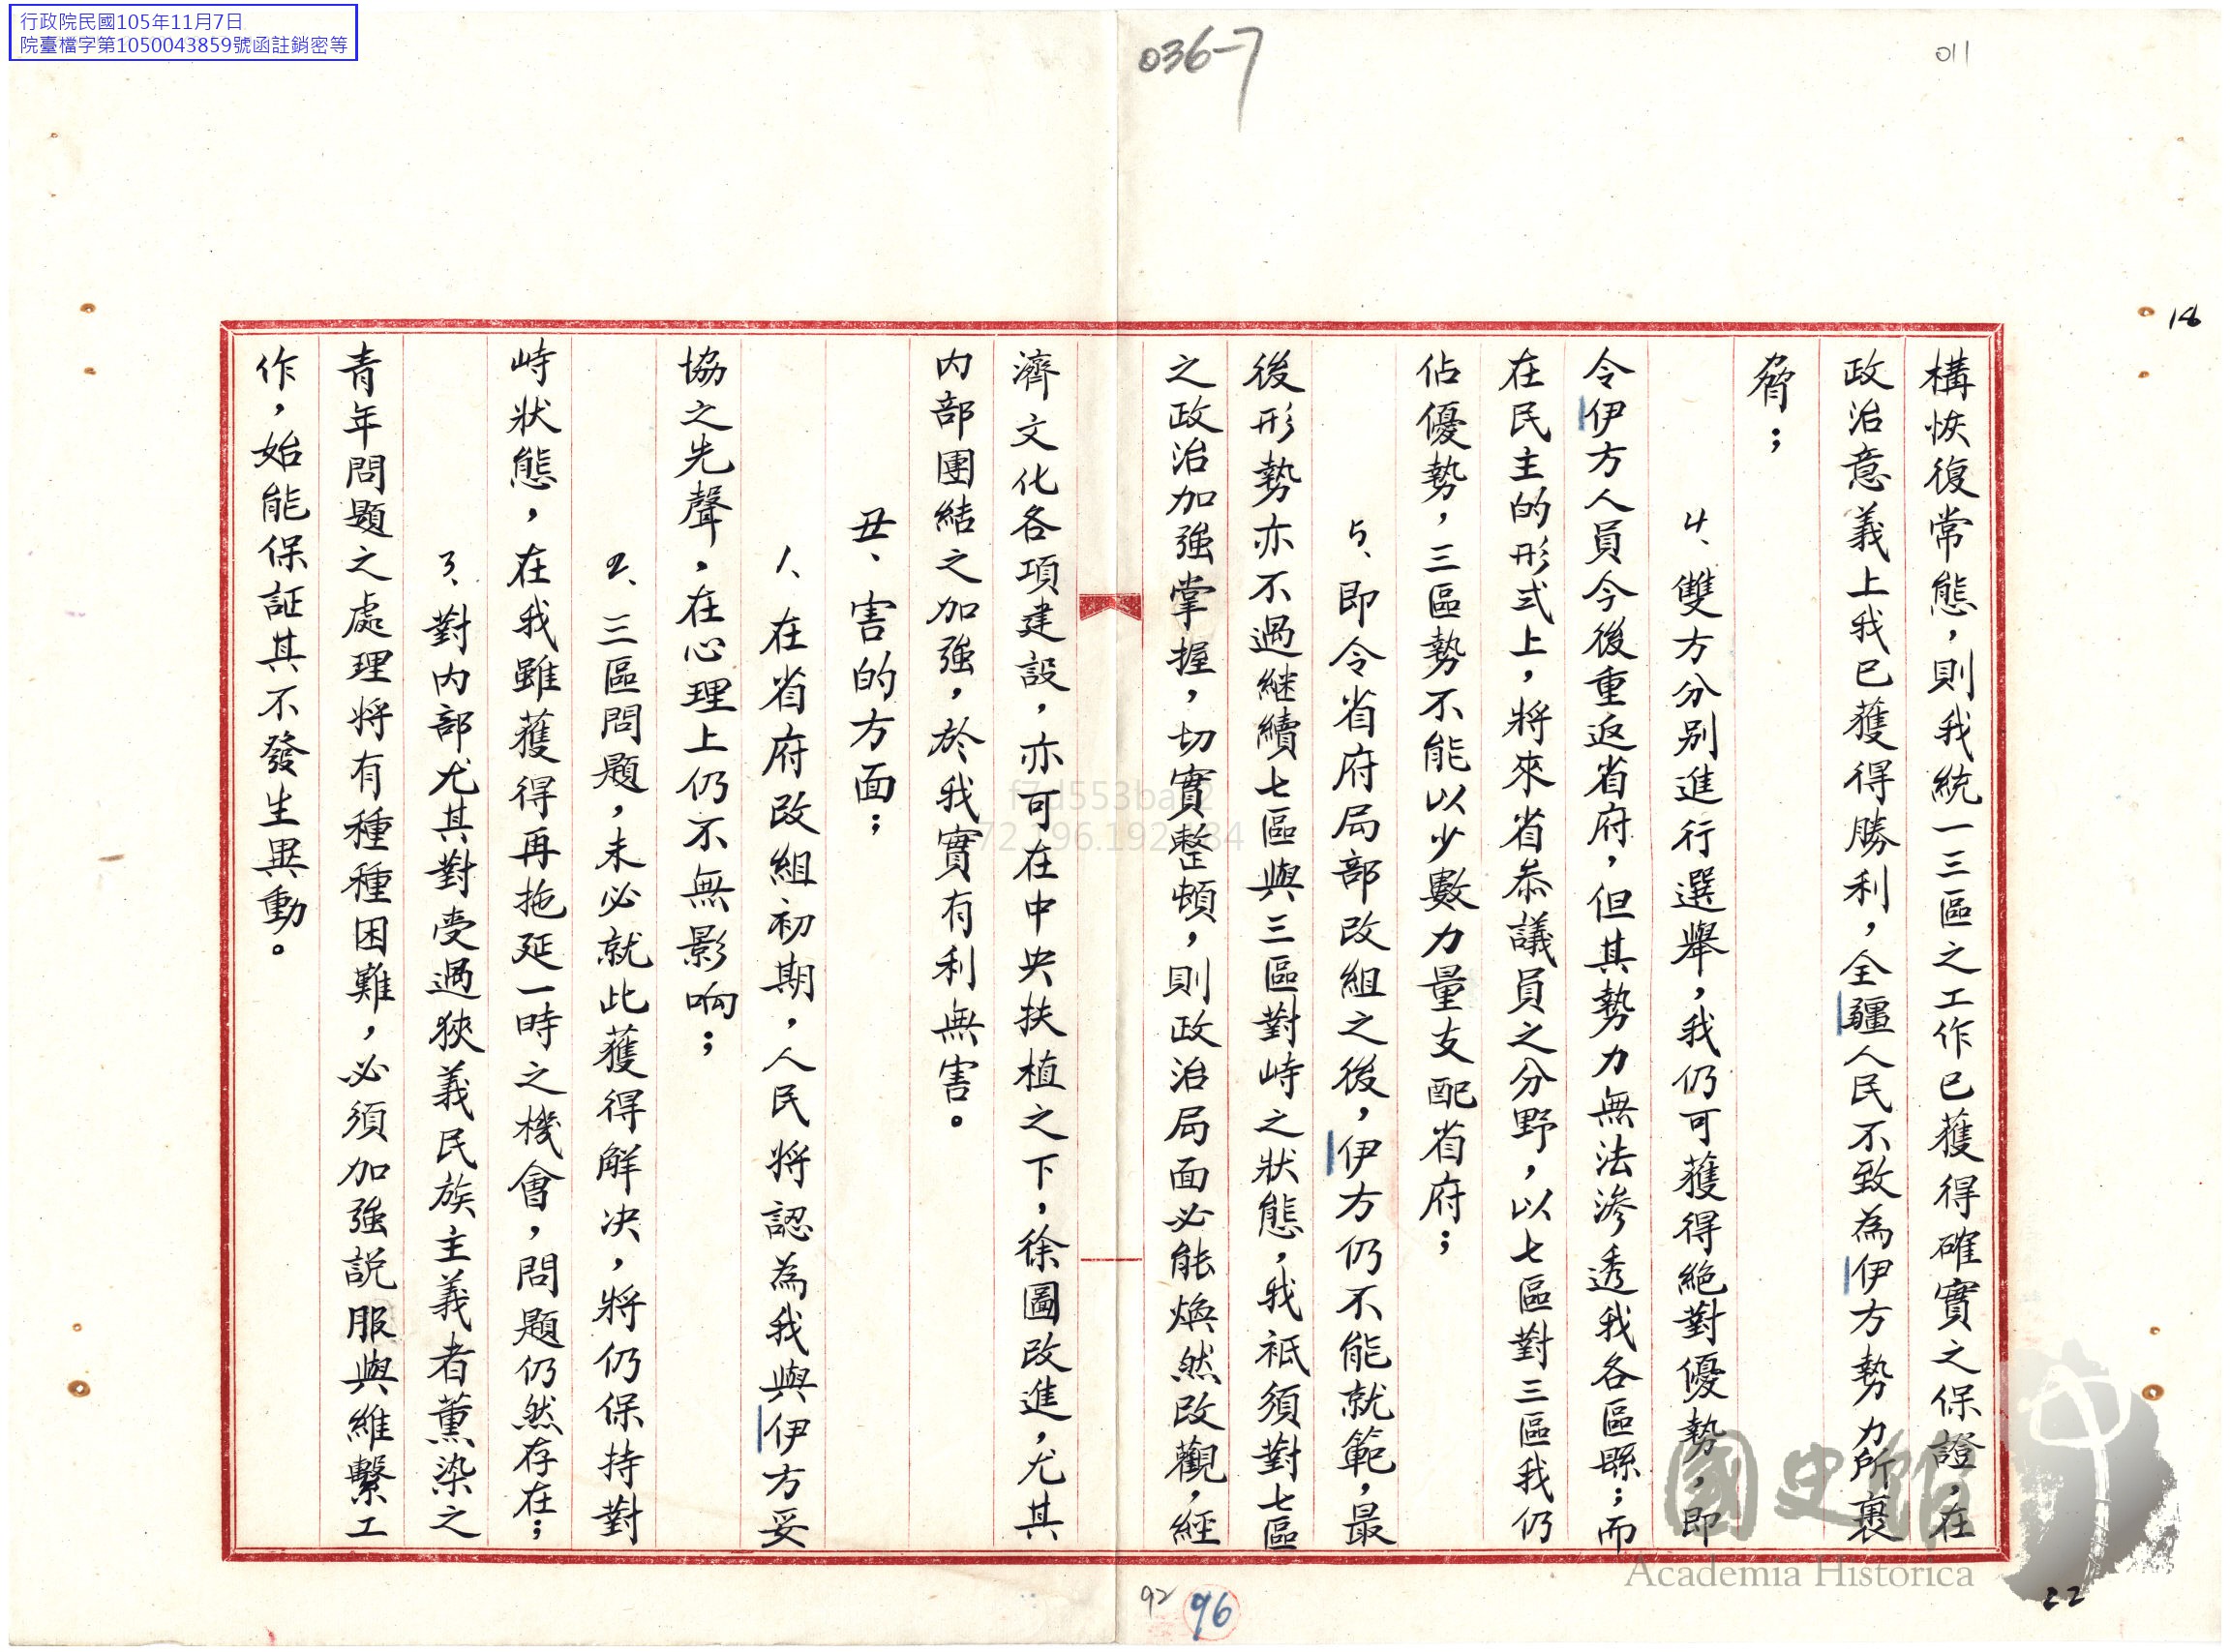 行政院民國105年11月7日
院臺檔字第1050043859號函註銷密等
036-7
011
18
構恢復常態，則我統一三區之工作已獲得確實之保證，在
政治意義上我已獲得勝利，全疆人民不致為伊方勢力所裹
脅；
4、雙方分別進行選舉，我仍可獲得絕對優勢，即
令伊方人員今後重返省府，但其勢力無法滲透我各區縣；而
在民主的形式上，將來省參議員之分野，以七區對三區我仍
佔優勢，三區勢不能以少數力量支配省府；
5、即令省府局部改組之後，伊方仍不能就範，最
後形勢亦不過繼續七區與三區對峙之狀態，我祇須對七區
之政治加強掌握，切實整頓，則政治局面必能煥然改觀，經
濟文化各項建設，亦可在中央扶植之下，徐圖改進，尤其
內部團結之加強，於我實有利無害。
丑、害的方面；
1、在省府改組初期，人民將認為我與伊方妥
協之先聲，在心理上仍不無影响；
2、三區問題，未必就此獲得解決，將仍保持對
峙狀態，在我雖獲得再拖延一時之機會，問題仍然存在；
3、對內部尤其對受過狹義民族主義者薰染之
青年問題之處理將有種種困難，必須加強説服與維繫工
作，始能保証其不發生異動。
國史館
Academia Historica
92
96
22